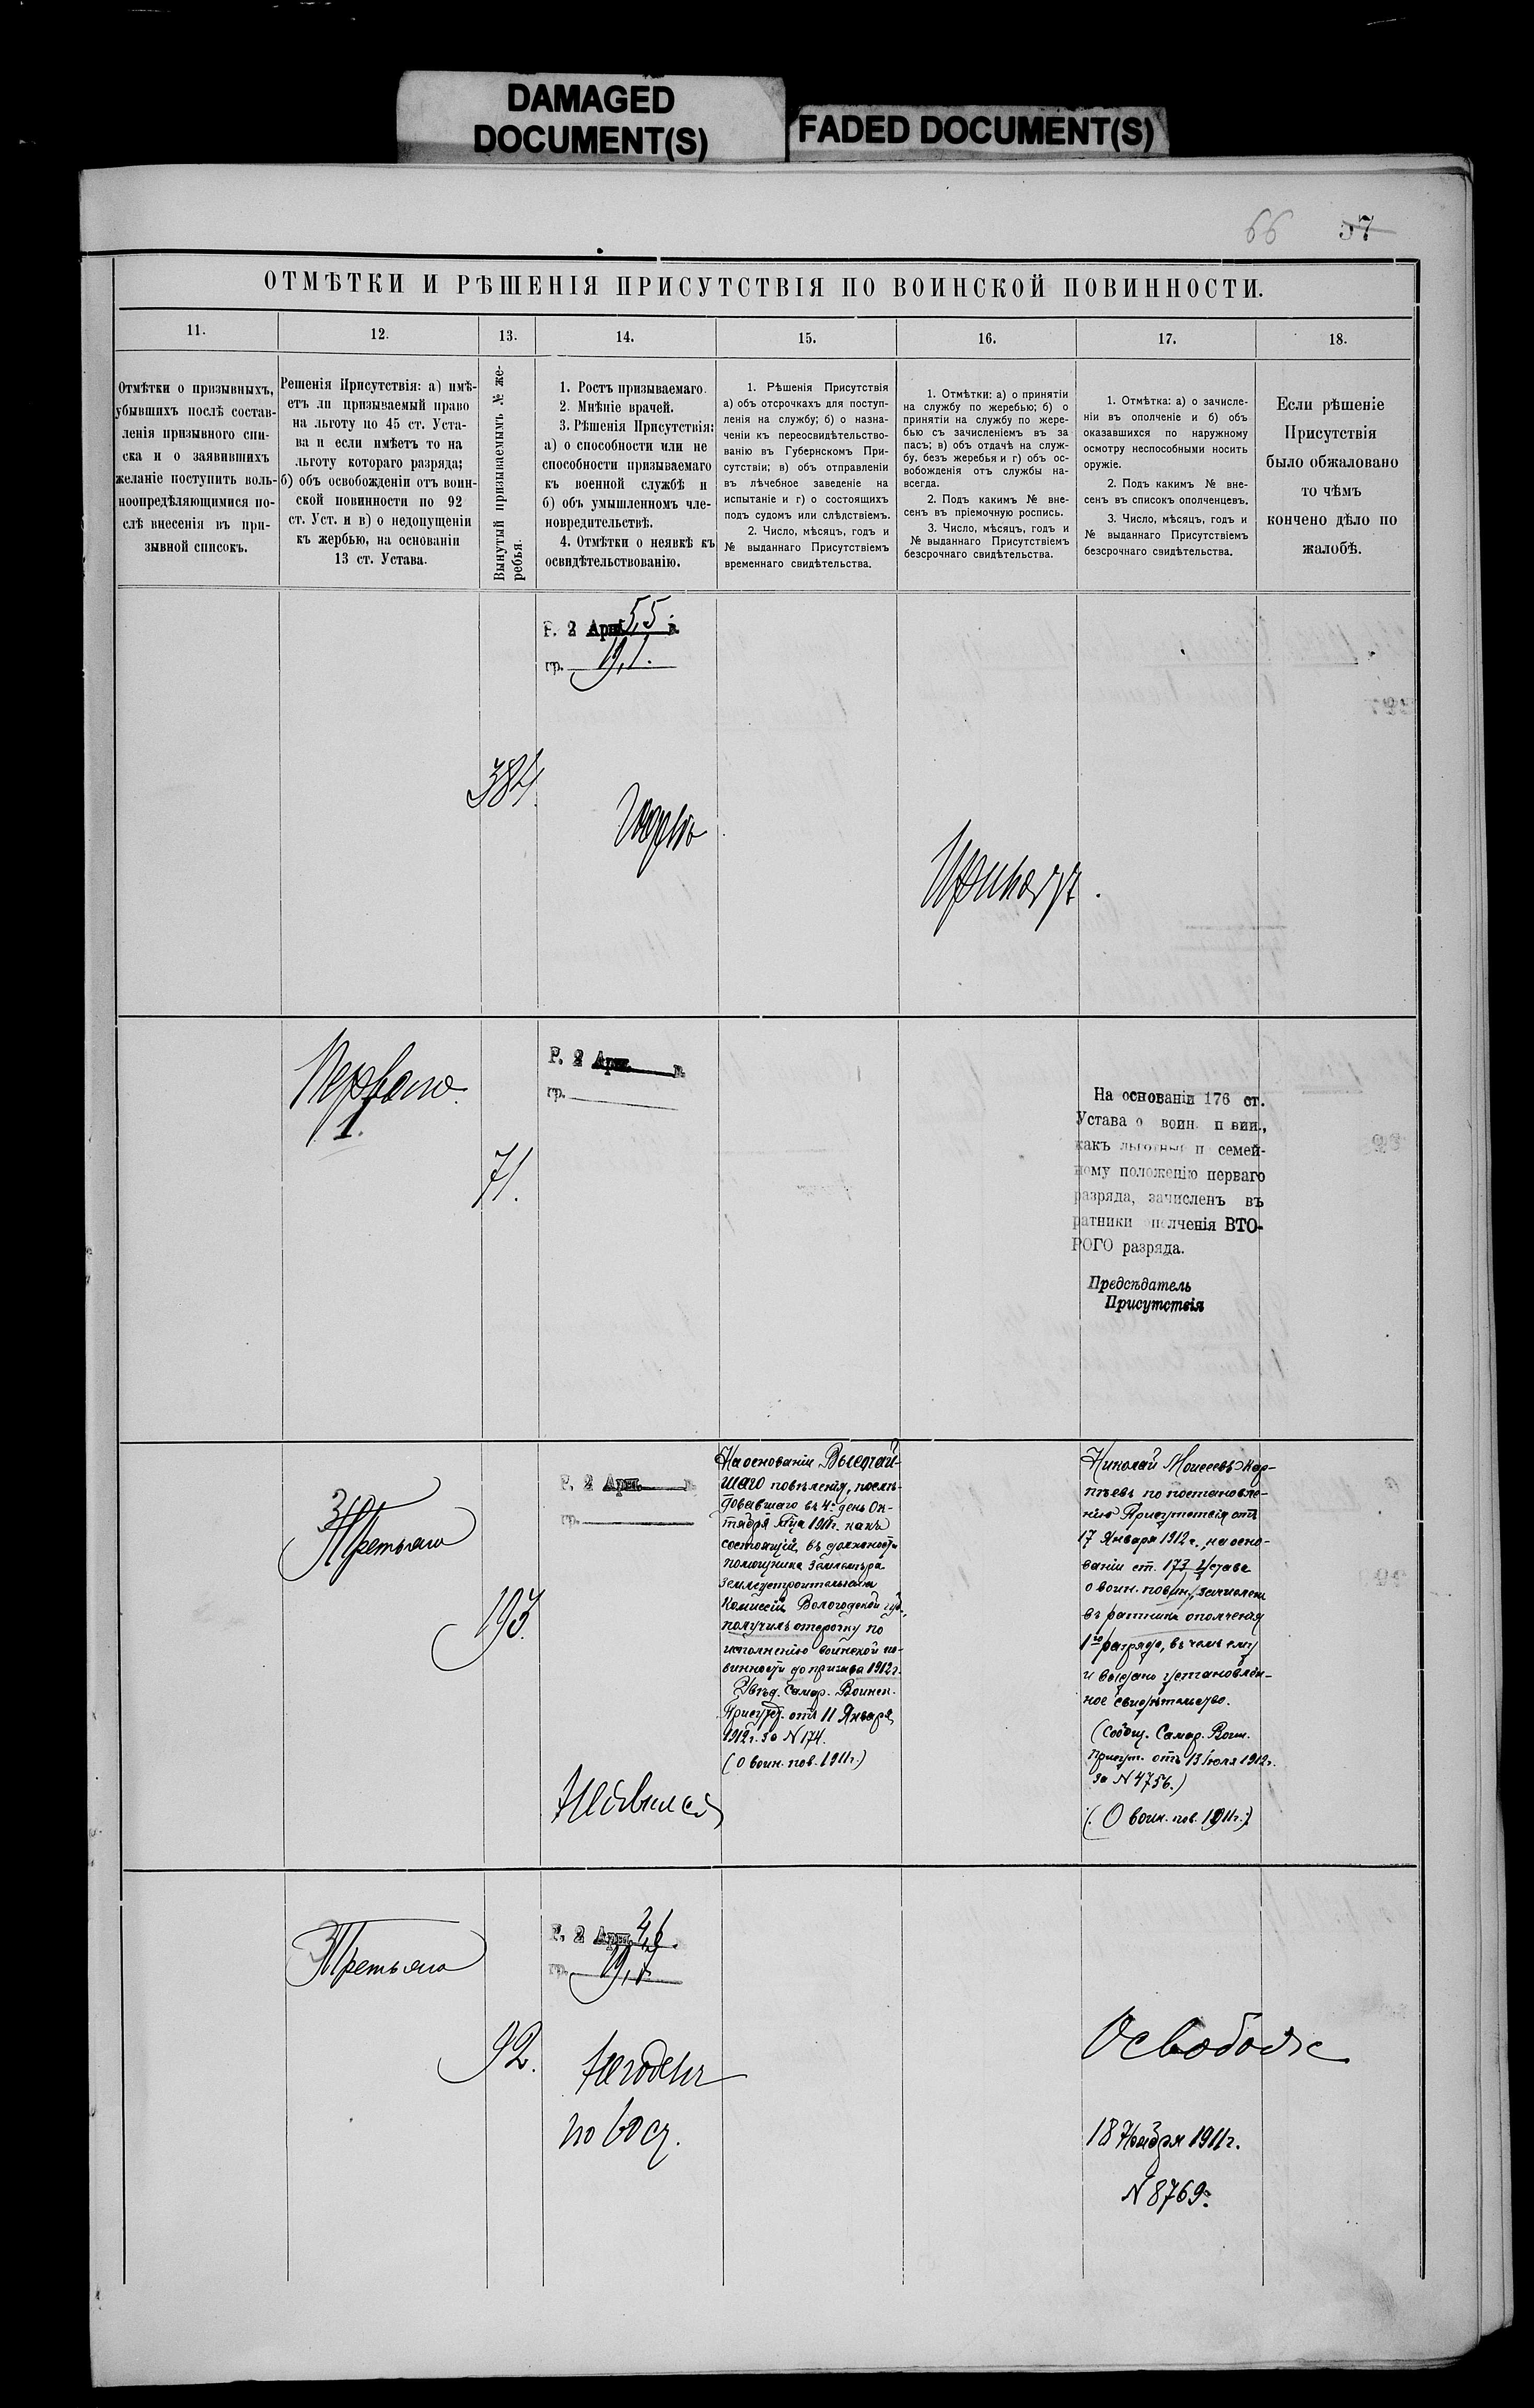 DAMAGED
DOCUMENT(S)
FADED DOCUMENT(S)
66 57
ОТМѢТКИ И РѢШЕНІЯ ПРИСУТСТВІЯ ПО ВОИНСКОЙ ПОВИННОСТИ.
11.
12.
13.
14.
15.
16.
17.
18.
Отмѣтки о призывныхъ,
убывшихъ послѣ состав-
ленія призывного спи-
ска и о заявившихъ
желаніе поступить воль-
ноопредѣляющимися по-
слѣ внесенія въ при-
зывной списокъ.
Решенія Присутствія: а) имѣ-
етъ ли призываемый право
на льготу по 45 ст. Уста-
ва и если имѣетъ то на
льготу котораго разряда;
б) объ освобожденіи отъ воин-
ской повинности по 92
ст. Уст. и в) о недопущеніи
къ жербью, на основаніи
13 ст. Устава.
Вынутый призываемымъ № же-
ребья.
1. Ростъ призываемаго.
2. Мнѣніе врачей.
3. Рѣшенія Присутствія:
а) о способности или не
способности призываемаго
къ военной службѣ и
б) объ умышленномъ чле-
новредительствѣ.
4. Отмѣтки о неявкѣ къ
освидѣтельствованію.
1. Рѣшенія Присутствія
а) объ отсрочкахъ для поступ-
ленія на службу; б) о назна-
ченіи къ переосвидѣтельство-
ванію въ Губернскомъ При-
сутствіи; в) объ отправленіи
въ лѣчебное заведеніе на
испытаніе и г) о состоящихъ
подъ судомъ или слѣдствіемъ.
2. Число, мѣсяцъ, годъ и
№ выданнаго Присутствіемъ
временнаго свидѣтельства.
1. Отмѣтки: а) о принятіи
на службу по жеребью; б) о
принятіи на службу по жере-
бью съ зачисленіемъ въ за
пасъ; в) объ отдачѣ на служ-
бу, безъ жеребья и г) объ ос-
вобожденія отъ службы на-
всегда.
2. Подъ какимъ № вне-
сенъ въ пріемочную роспись.
3. Число, мѣсяцъ, годъ и
№ выданнаго Присутствіемъ
безсрочнаго свидѣтельства.
1. Отмѣтка: а) о зачисле-
ніи въ ополченіе и б) объ
оказавшихся по наружному
осмотру неспособными носить
оружіе.
2. Подъ какимъ № вне-
сенъ въ списокъ ополченцевъ.
3. Число, мѣсяцъ, годъ и
№ выданнаго Присутствіемъ
безсрочнаго свидѣтельства.
Если рѣшеніе
Присутствія
было обжаловано
то чѣмъ
кончено дѣло по
жалобѣ.
Р. 2 Арш. 5,5 в.
гр. 19,1.
384.
Годенъ
Принятъ.
Перваго
1.
71.
Р. 2 Арш. в.
гр.
На основаніи 176 ст.
Устава о воин. п вин.,
какъ льготны п семей-
ному положенію перваго
разряда, зачисленъ въ
ратники полченія ВТО-
РОГО разряда.
Предсѣдатель
Присутствія
3
Третьяго
193.
Р. 2 Арш. в.
гр.
Неявился
На основаніи Высочай-
шаго повѣленія, послѣ-
довавшаго въ 4й день Ок-
тября м-ца 1911г. какъ
состоящій въ должности
помощника землемѣра
землеустроительной
комиссіи Вологодской губ.,
получилъ отсрочку по
исполненію воинской по-
винности до призыва 1912г.
Увѣд. Самар. Воинск.
Присут. отъ 11 Января
1912г. за N 174.
(О воин. пов. 1911г.)
Николай Моисеевъ Кар-
пѣевъ по постановле-
нію Присутствія отъ
17 Января 1912г., на осно-
ваніи ст. 173 Устава
о воин. повин., зачисленъ
въ ратники ополченія
1го разряда, въ чемъ ему
и выдано установлен-
ное свидѣтельство.
(Сообщ. Самар. Воин.
Присут. отъ 13 Іюля 1912г.
за N 4756.)
(О воин. пов. 1911г.)
3
Третьяго
92.
Р. 2 Арш. 4,6.
гр. 19,
Негоденъ
по 60 ст.
Освобожд
18 Ноября 1911г.
N 8769.